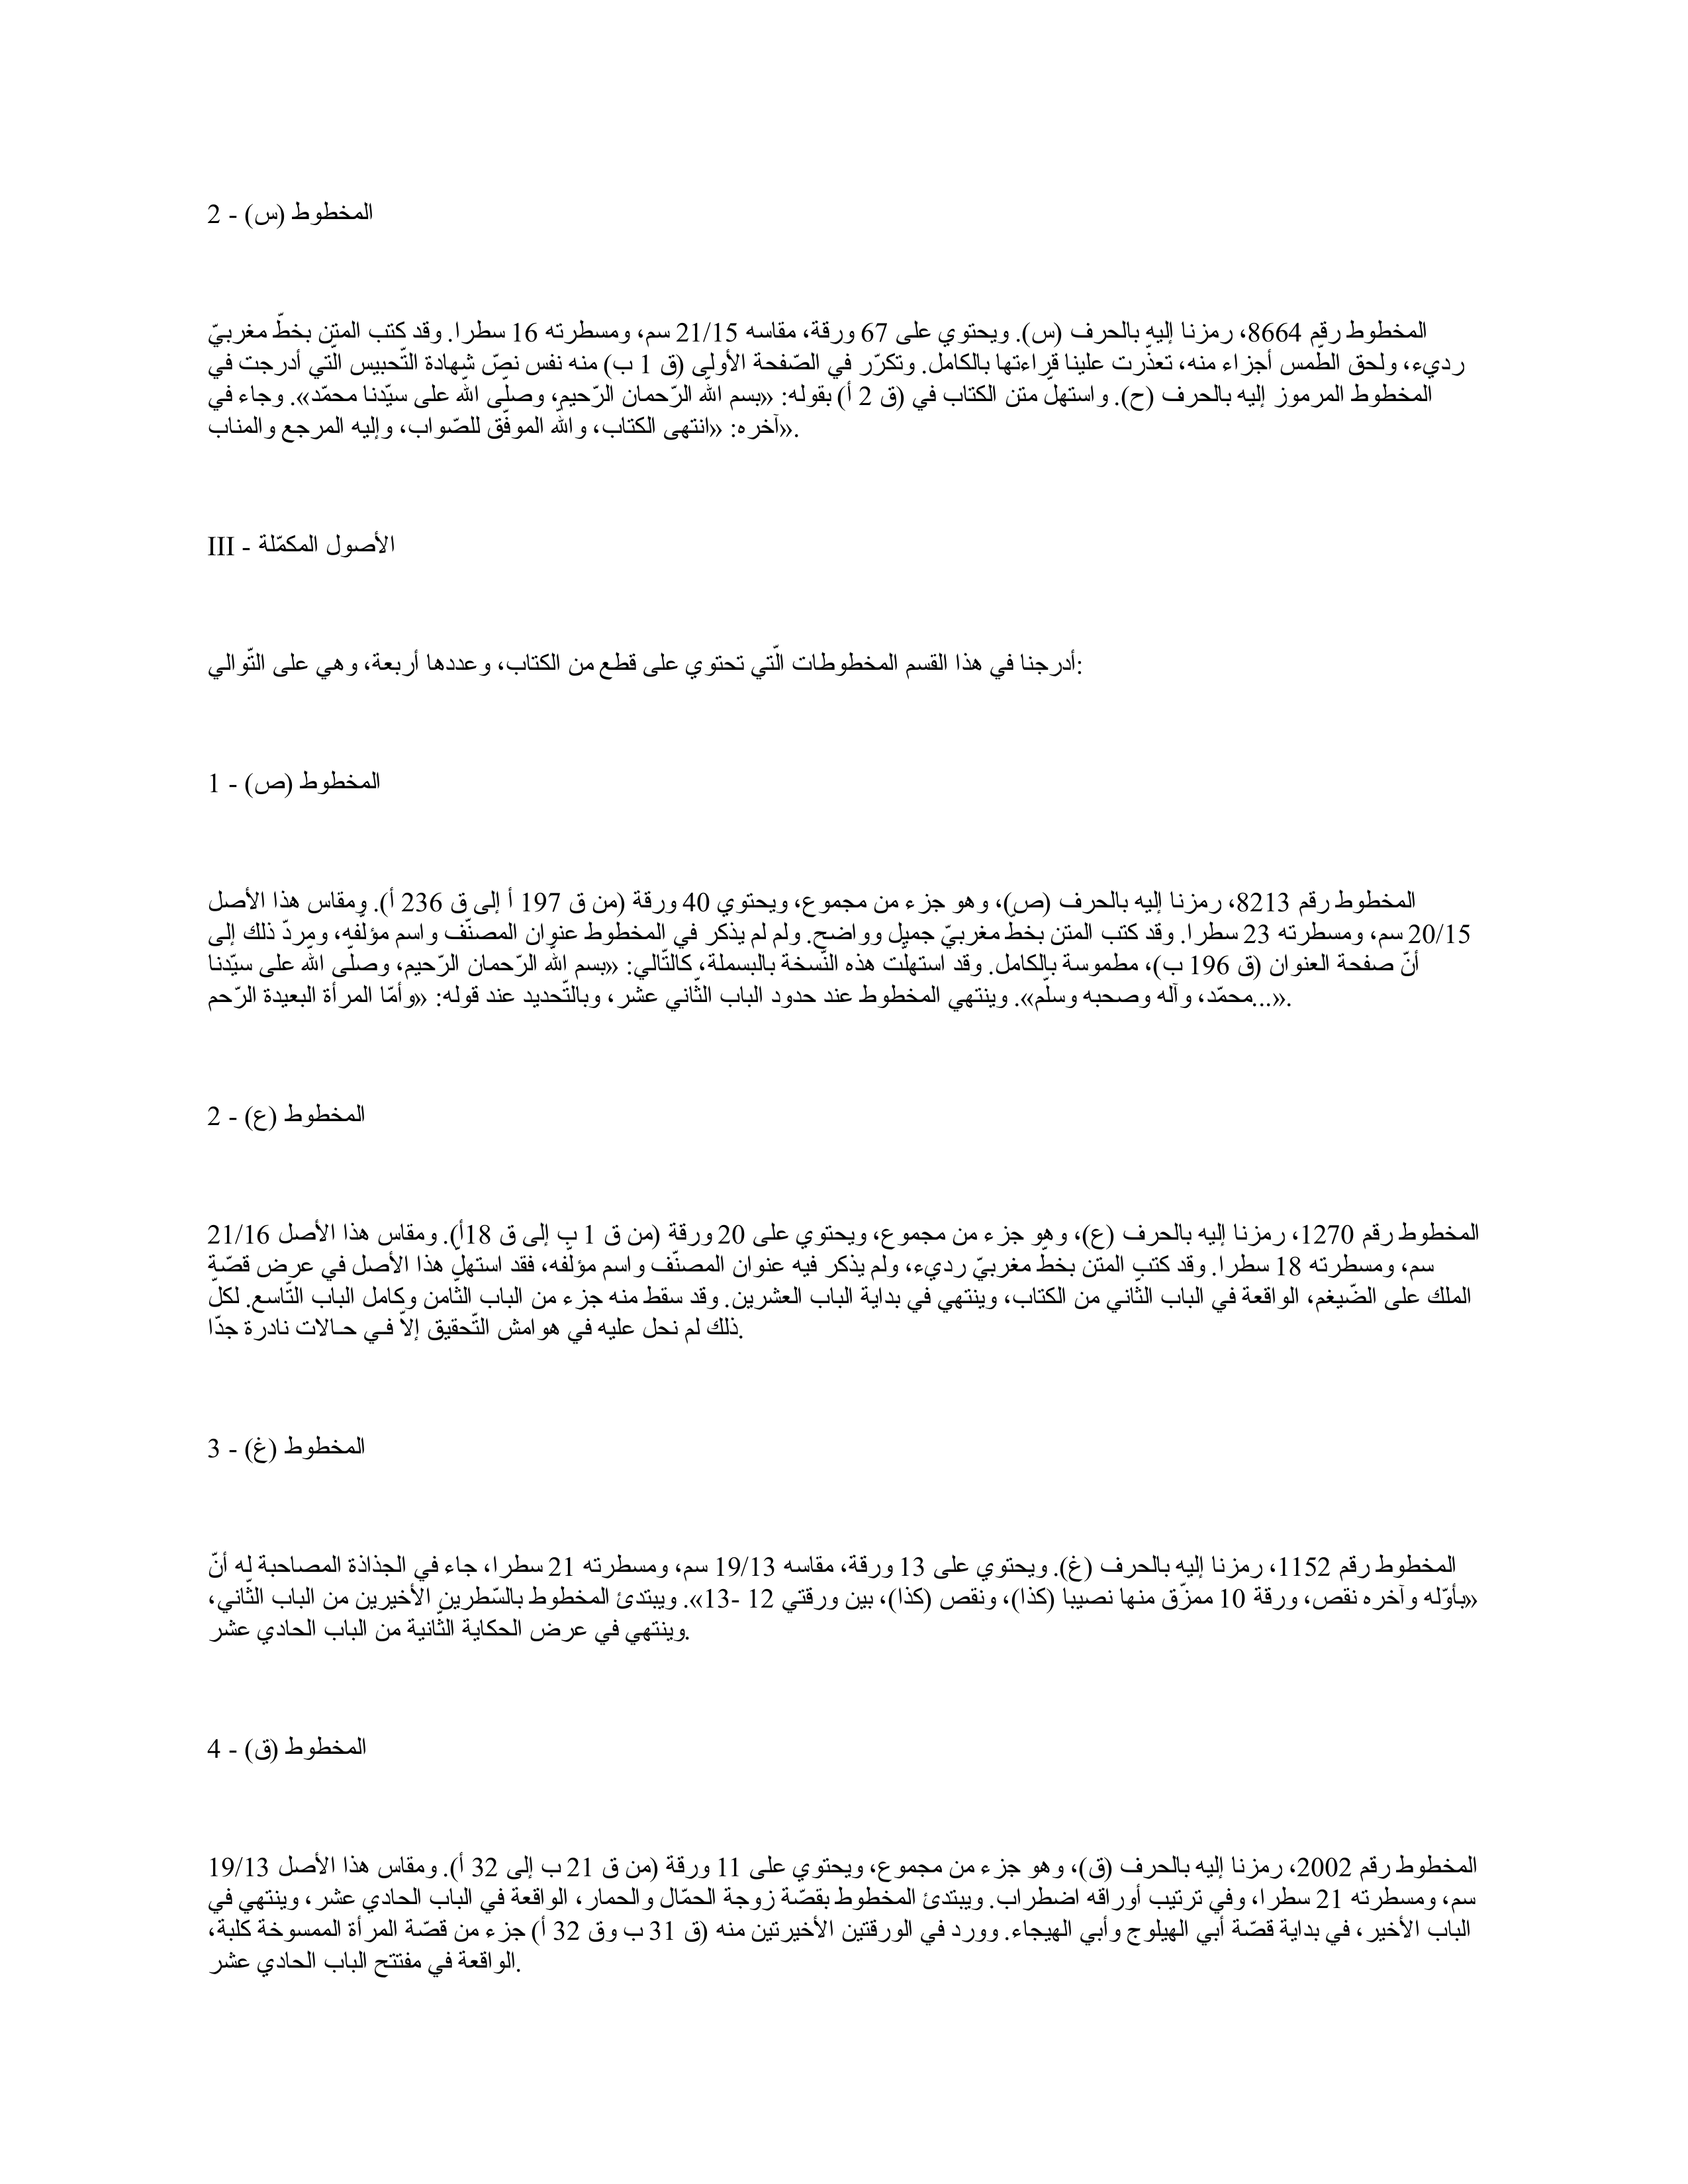 2 - المخطوط (س)
المخطوط رقم 8664، رمزنا إليه بالحرف (س). ويحتوي على 67 ورقة، مقاسه 21/15 سم، ومسطرته 16 سطرا. وقد كتب المتن بخطّ مغربيّ
رديء، ولحق الطّمس أجزاء منه، تعذّرت علينا قراءتها بالكامل. وتكرّر في الصّفحة الأولى (ق 1 ب) منه نفس نصّ شهادة التّحبيس الّتي أدرجت في
المخطوط المرموز إليه بالحرف (ح). واستهلّ متن الكتاب في (ق 2 أ) بقوله: «بسم اللّه الرّحمان الرّحيم، وصلّى اللّه على سيّدنا محمّد». وجاء في
آخره: «انتهى الكتاب، واللّه الموفّق للصّواب، وإليه المرجع والمناب».
III - الأصول المكمّلة
أدرجنا في هذا القسم المخطوطات الّتي تحتوي على قطع من الكتاب، وعددها أربعة، وهي على التّوالي:
1 - المخطوط (ص)
المخطوط رقم 8213، رمزنا إليه بالحرف (ص)، وهو جزء من مجموع، ويحتوي 40 ورقة (من ق 197 أ إلى ق 236 أ). ومقاس هذا الأصل
20/15 سم، ومسطرته 23 سطرا. وقد كتب المتن بخطّ مغربيّ جميل وواضح. ولم لم يذكر في المخطوط عنوان المصنّف واسم مؤلّفه، ومردّ ذلك إلى
أنّ صفحة العنوان (ق 196 ب)، مطموسة بالكامل. وقد استهلّت هذه النّسخة بالبسملة، كالتّالي: «بسم اللّه الرّحمان الرّحيم، وصلّى اللّه على سيّدنا
محمّد، وآله وصحبه وسلّم». وينتهي المخطوط عند حدود الباب الثّاني عشر، وبالتّحديد عند قوله: «وأمّا المرأة البعيدة الرّحم...».
2 - المخطوط (ع)
المخطوط رقم 1270، رمزنا إليه بالحرف (ع)، وهو جزء من مجموع، ويحتوي على 20 ورقة (من ق 1 ب إلى ق 18أ). ومقاس هذا الأصل 21/16
سم، ومسطرته 18 سطرا. وقد كتب المتن بخطّ مغربيّ رديء، ولم يذكر فيه عنوان المصنّف واسم مؤلّفه، فقد استهلّ هذا الأصل في عرض قصّة
الملك على الضّيغم، الواقعة في الباب الثّاني من الكتاب، وينتهي في بداية الباب العشرين. وقد سقط منه جزء من الباب الثّامن وكامل الباب التّاسع. لكلّ
ذلك لم نحل عليه في هوامش التّحقيق إلاّ فـي حـالات نادرة جدّا.
3 - المخطوط (غ)
المخطوط رقم 1152، رمزنا إليه بالحرف (غ). ويحتوي على 13 ورقة، مقاسه 19/13 سم، ومسطرته 21 سطرا، جاء في الجذاذة المصاحبة له أنّ
«بأوّله وآخره نقص، ورقة 10 ممزّق منها نصيبا (كذا)، ونقص (كذا)، بين ورقتي 12 -13». ويبتدئ المخطوط بالسّطرين الأخيرين من الباب الثّاني،
وينتهي في عرض الحكاية الثّانية من الباب الحادي عشر.
4 - المخطوط (ق)
المخطوط رقم 2002، رمزنا إليه بالحرف (ق)، وهو جزء من مجموع، ويحتوي على 11 ورقة (من ق 21 ب إلى 32 أ). ومقاس هذا الأصل 19/13
سم، ومسطرته 21 سطرا، وفي ترتيب أوراقه اضطراب. ويبتدئ المخطوط بقصّة زوجة الحمّال والحمار، الواقعة في الباب الحادي عشر، وينتهي في
الباب الأخير، في بداية قصّة أبي الهيلوج وأبي الهيجاء. وورد في الورقتين الأخيرتين منه (ق 31 ب وق 32 أ) جزء من قصّة المرأة الممسوخة كلبة،
الواقعة في مفتتح الباب الحادي عشر.